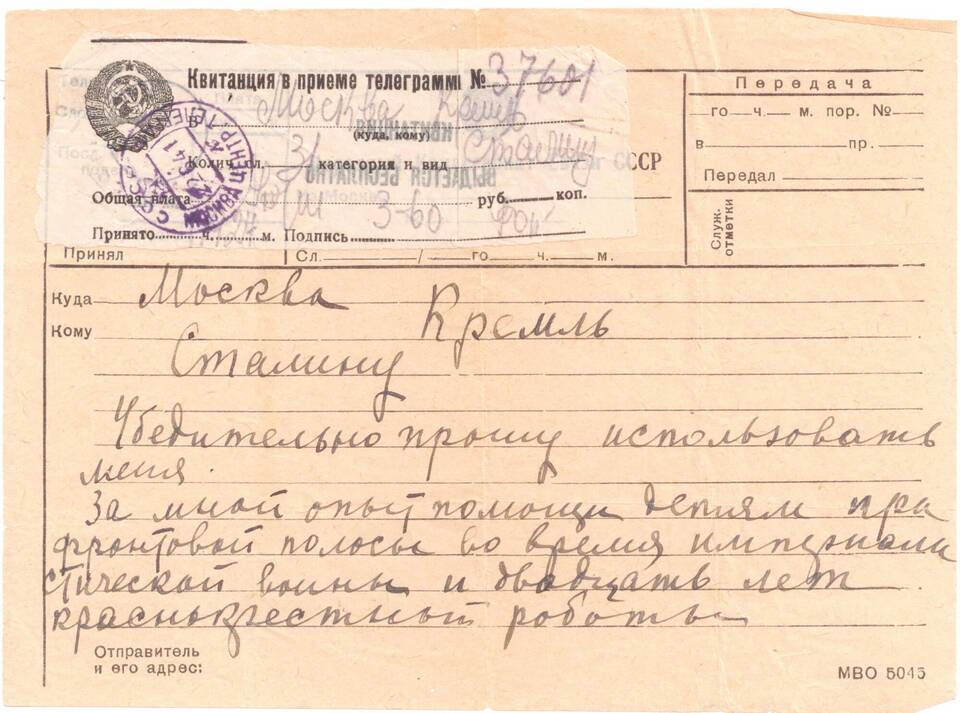 Квитанция в приеме телеграмм № 37601
В Москва
(куда, кому)
Сталину
Колич. сл. 31 категория и вид
СССР
Общая плата 3-60 руб. коп.
Принято ч. м. Подпись
КВИТАНЦИЯ
ВЫДАЕТСЯ БЕСПЛАТНО
МОСКВА ЦЕНТР. ТЕЛЕГРАФ
Передача
го ч. м. пор. №
в пр.
Передал
Служ. отметки
Принял Сл. / го ч. м.
Куда Москва
Кому Кремль
Сталину
Убедительно прошу использовать
меня.
За мной опыт помощи детям при
фронтовой полосы во время империали
стической войны и двадцать лет
краснокрестный работы
Отправитель
и его адрес:
МВО 5045